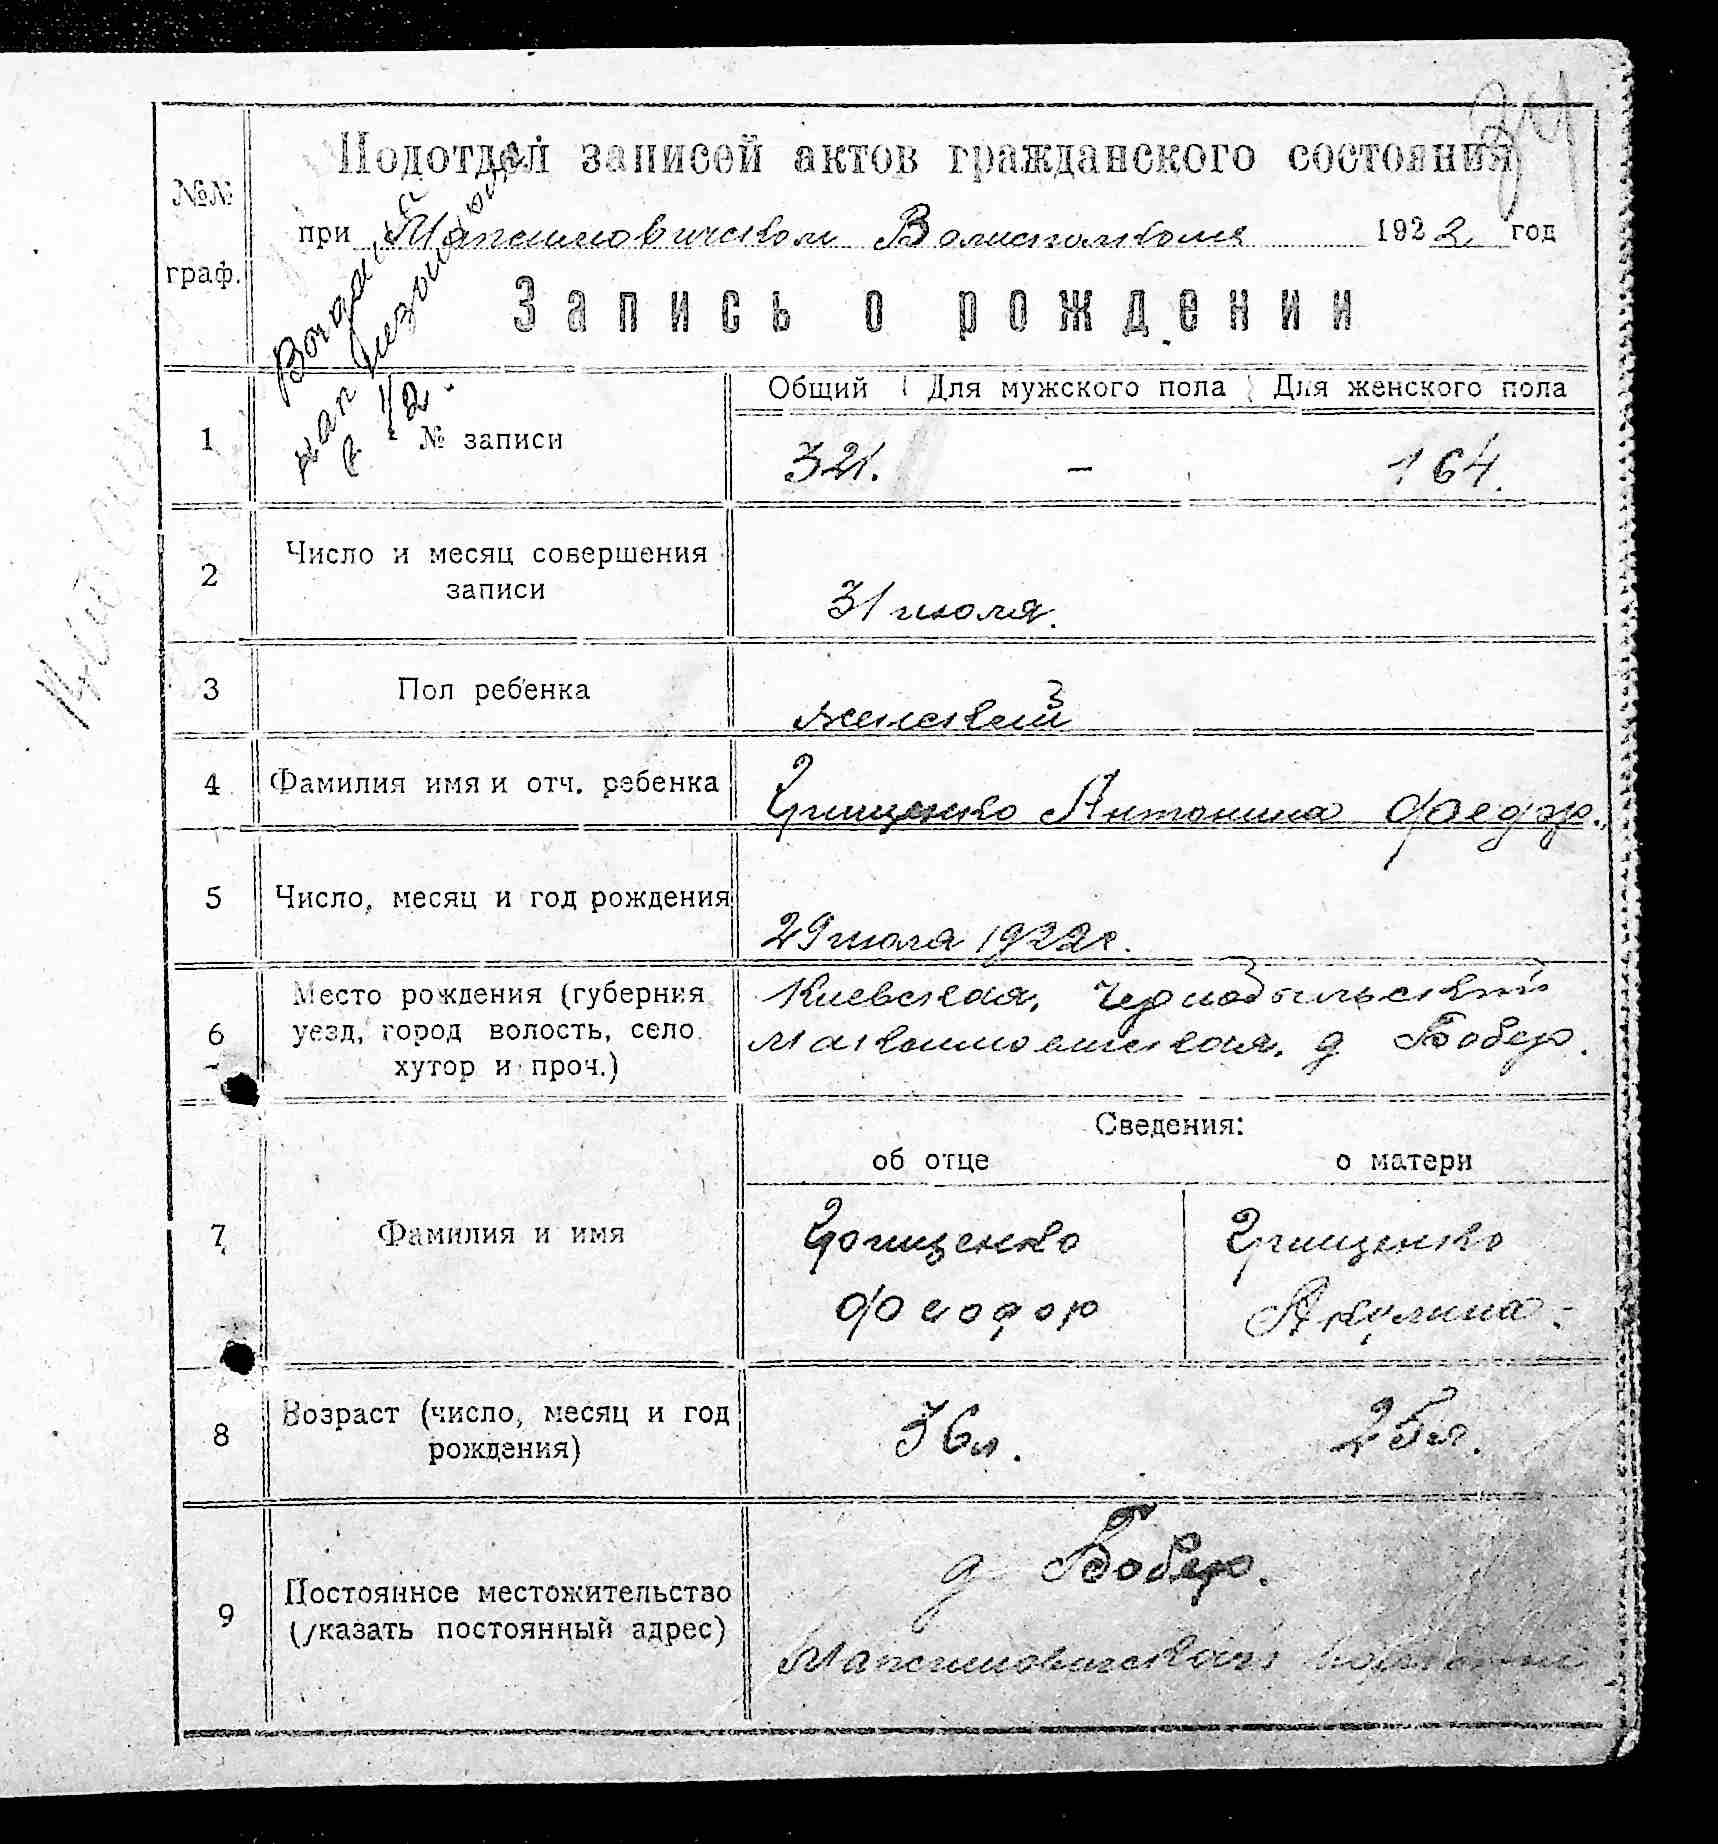 34
№№ граф.
Подотдел записей актов гражданского состояния
при Максимовическом Волисполкоме 1922 год
Запись о рождении
1
№ записи
Общий Для мужского пола Для женского пола
321. - 164.
2
Число и месяц совершения
записи
31 июля.
3
Пол ребенка
женский
4
Фамилия имя и отч. ребенка
Грищенко Антонина Федор.
5
Число, месяц и год рождения
29 июля 1922 г.
6
Место рождения (губерния
уезд, город волость, село
хутор и проч.)
Киевская, Чернобыльский
Максимовическая, д Бобер.
Сведения:
об отце о матери
7
Фамилия и имя
Грищенко Грищенко
Феодор Акулина
8
Возраст (число, месяц и год
рождения)
36 л. 25 л.
9
Постоянное местожительство
(указать постоянный адрес)
д Бобер.
Максимовическая